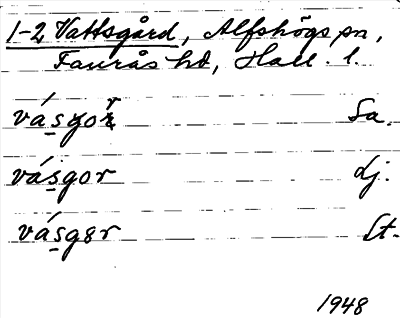 1-2 Vattsgård, Alfshögs sn,
Faurås hd, Hall. l.
vásgor Sa.
vásgor dj.
vásgər St.
1948